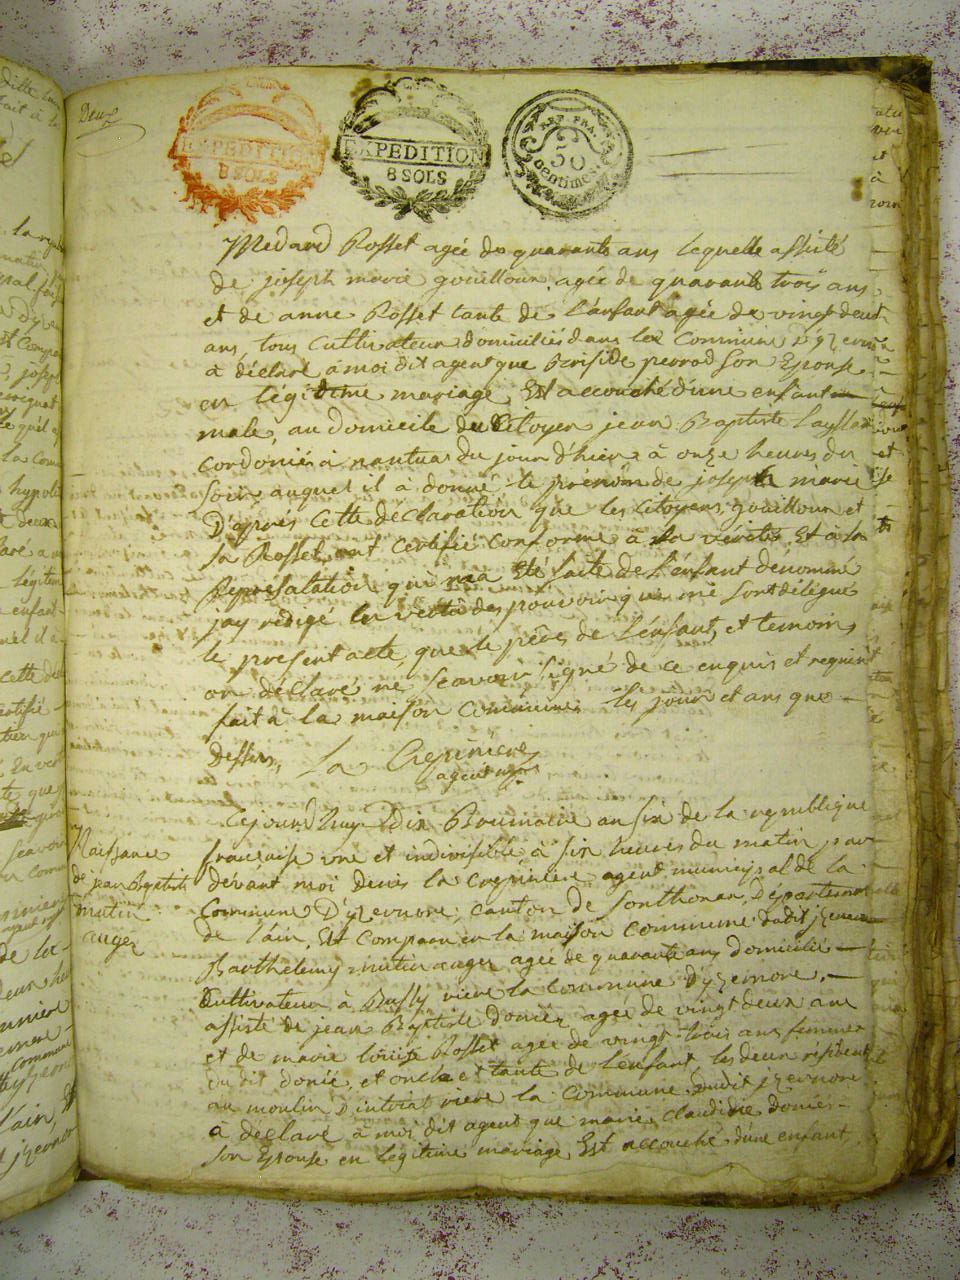 Deux
EXPEDITION
8 SOLS
EXPEDITION
8 SOLS
REP. FRA.
50
centimes
Medard Rosset agée de quarante ans lequelle assisté
de joseph marie gouilloux agée de quarante trois ans
et de anne Rosset tante de L'enfant agée de vingt deux
ans tous Cultivateur domiciliés dans la Commune D'yzernore
à déclaré à moi dit agent que perrod son Epouse
en légitime mariage Est accouché d'une enfant
male, au Domicile du Citoyen jean Baptiste
cordonié à nantua du jour d'hier à onze heures du
soir auquel il à donné le prenom de joseph marie
D'après Cette déclaration que les Citoyens gouilloux et
la Rosset ont certifié conforme à la vérité Et à la
Représalation qui m'a Eté faite de L'enfant denommé
jay rédigé En vertu des pouvoir qui me sont délégué
le present acte, que le père de L'enfant, et temoins
on déclaré ne scavoir signé de ce enquis et requis
fait à la maison commune les jour et ans que
dessus, La Crepiniere
agent
Naissance
de jean Baptiste
mutin
auger
Cejourd'huy dix Brumaire an six de la republique
françoise une et indivisible à six heures du matin par
devant moi denis la Crepiniere agent municipal de la
Commune D'yzernore, canton de Sonthonax, Département
de L'ain, Est comparu en la maison commune dudit yzernore
Barthelemy mutin auger agée de quarante ans domicilié
Cultivateur à Bussy riere la Commune D'yzernore,
assisté de jean Baptiste donier agée de vingt deux ans
et de marie louise Rosset agée de vingt trois ans femme
du dit donié, et oncle et tante de L'enfant les deux résident
au moulin D'intriat riere la Commune Dudit yzernore
à déclaré à moi dit agent que marie claudine donier
son Epouse en légitime mariage Est accouché d'une enfant